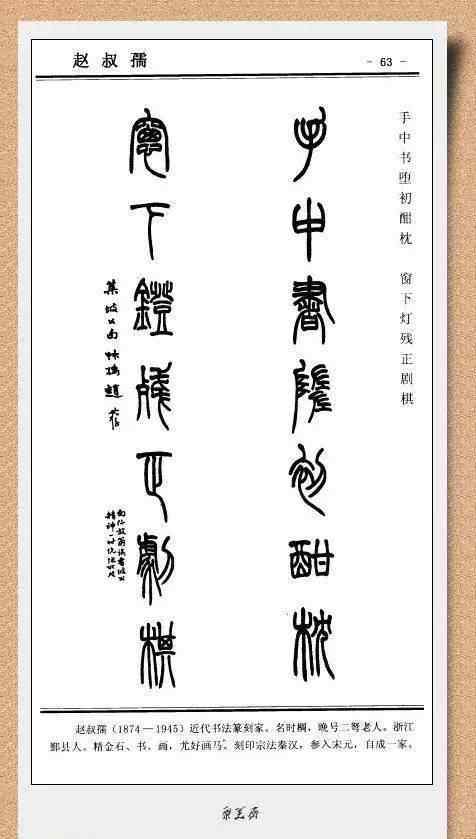 赵叔孺
- 63 -
手中书堕初酣枕 窗下灯残正剧棋
手中書墮初酣枕
窗下鐙殘正劇棋
赵叔孺(1874—1945)近代书法篆刻家。名时棡,晚号二弩老人。浙江
鄞县人。精金石、书、画,尤好画马。刻印宗法秦汉,参入宋元,自成一家。